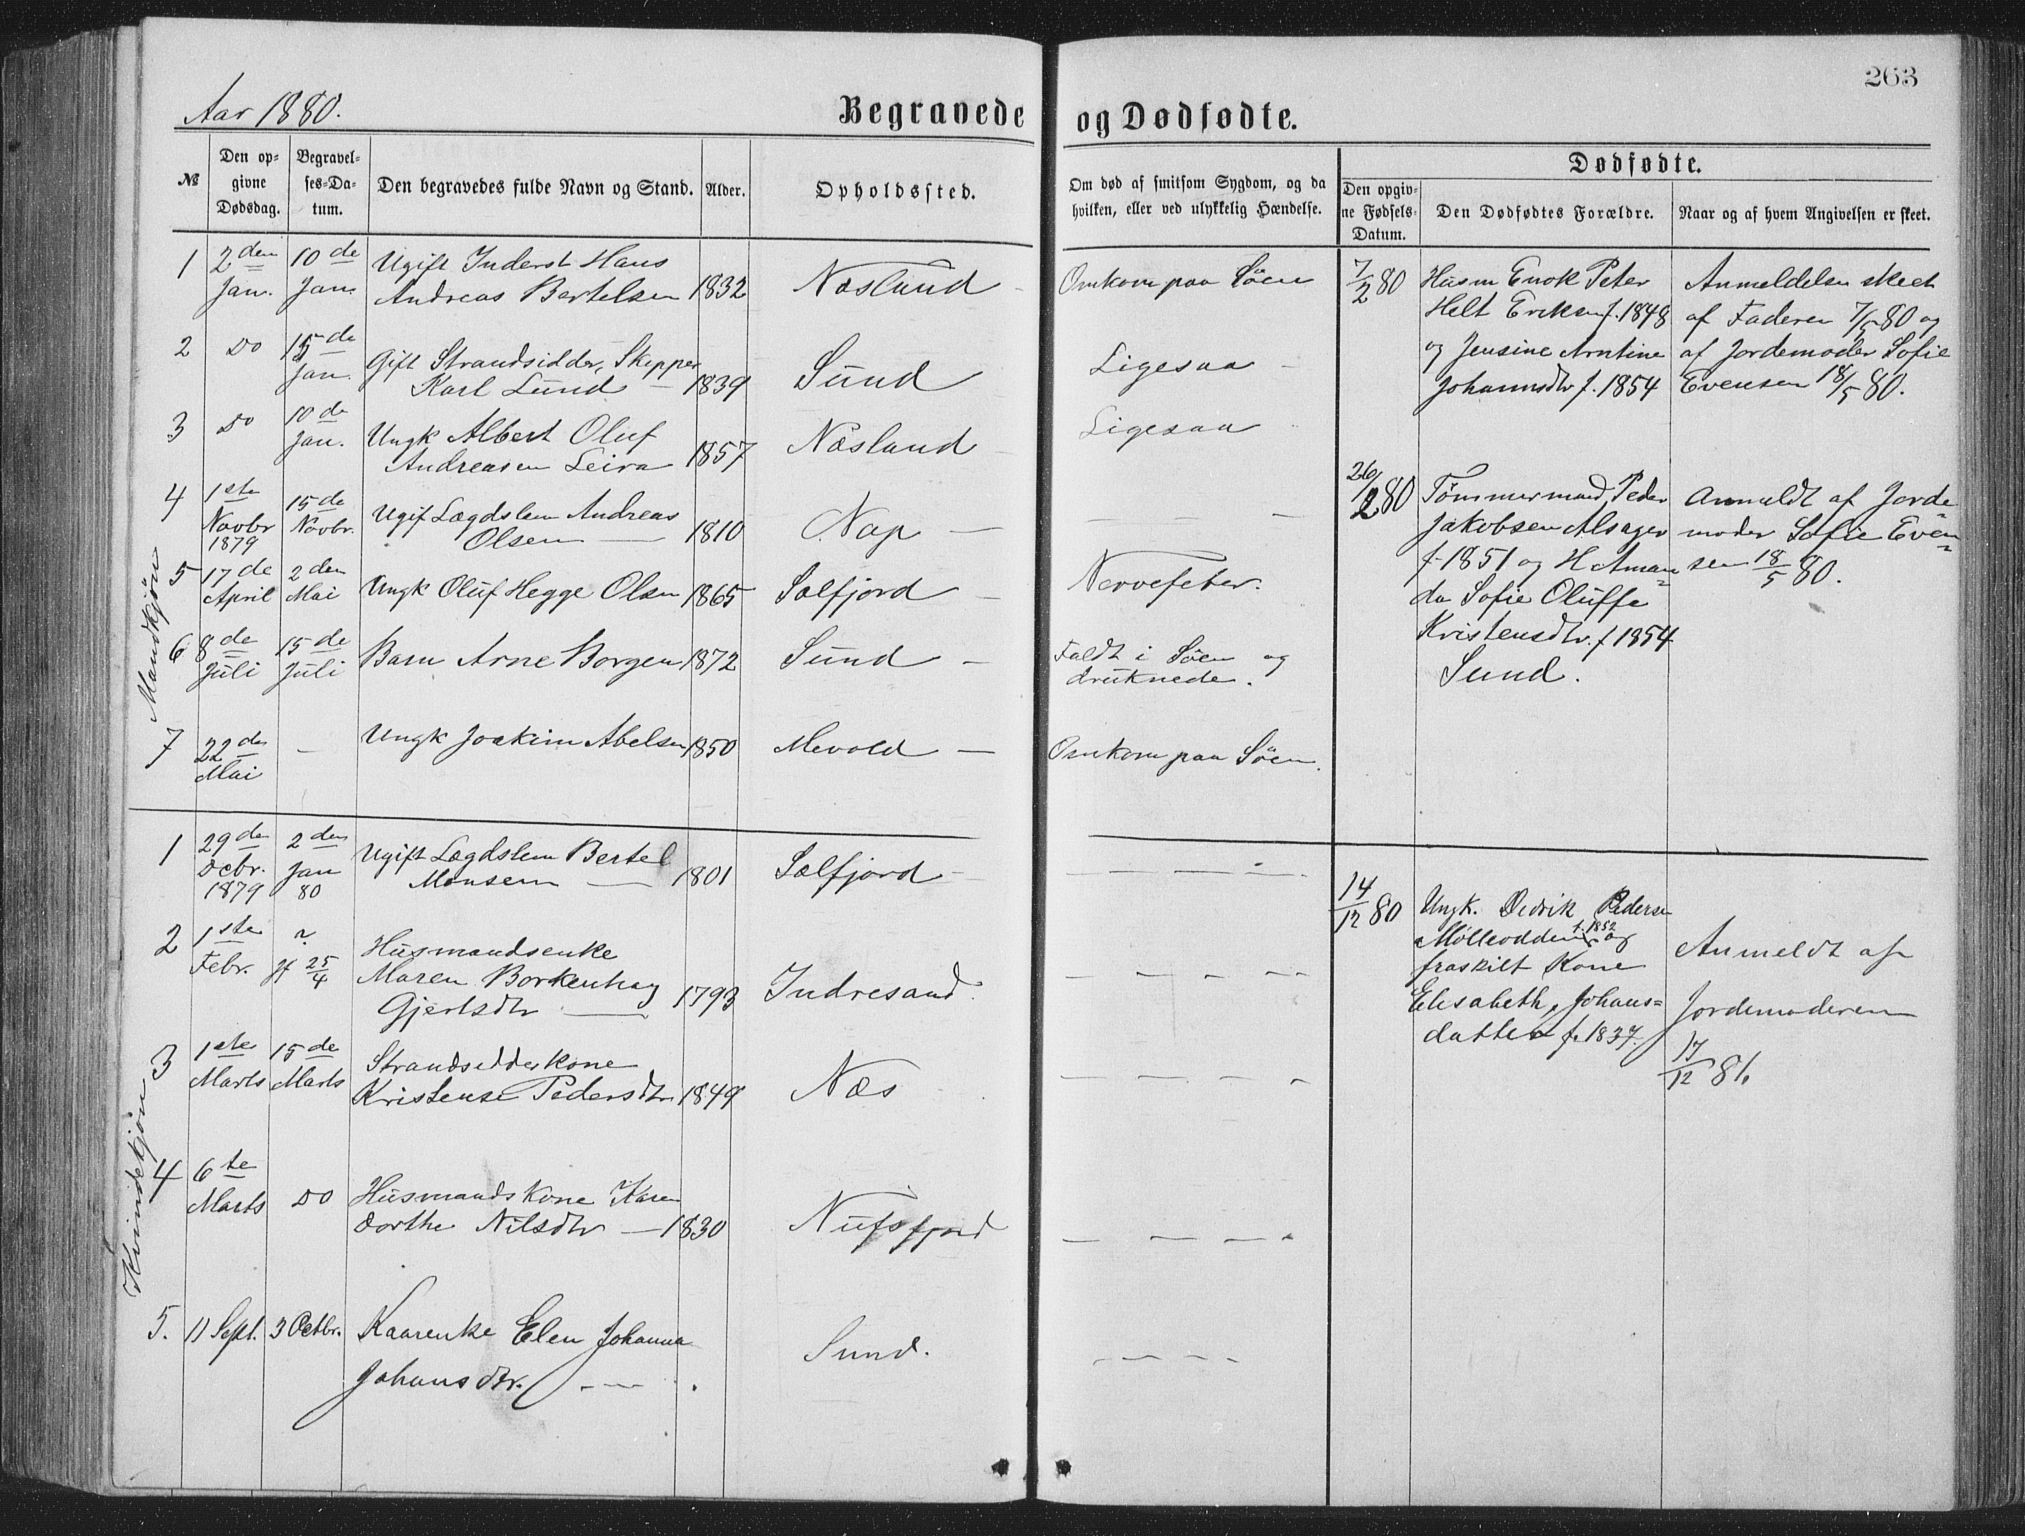 263
Aar 1880.
Begravede og Dødfødte.
№
Den op-
givne
Dødsdag.
Begravel-
ses-Da-
tum.
Den begravedes fulde Navn og Stand.
Alder.
Opholdssted.
Om død af smitsom Sygdom, og da
hvilken, eller ved ulykkelig Hændelse.
Dødfødte.
Den opgiv-
ne Fødsels-
Datum.
Den Dødfødtes Forældre.
Naar og af hvem Angivelsen er skeet.
Mandkjøn
1 2den Jan. 10de Jan. Ugift Inderst Hans
Andreas Bertelsen 1832 Næsland Omkom paa Søen
2 Do 15de Jan. Gift Strandsidder, Skipper
Karl Lund 1839 Sund Ligesaa
3 Do 10de Jan. Ungk Albert Oluf
Andreasen Leira 1857 Næsland Ligesaa
4 1ste Novbr 1879 15de Novbr. Ugif Lægdslem Andreas
Olsen 1810 Nap
5 17de April 2den Mai Ungk Oluf Hegge Olsen 1865 Sælfjord Nervefeber.
6 8de Juli 15de Juli Barn Arne Borgen 1872 Sund Faldt i Søen og
druknede.
7 22de Mai – Ungk Joakim Abelsen 1850 Mevold Omkom paa Søen.
Kvindekjøn
1 29de Decbr. 1879 2den Jan 80 Ugift Lægdslem Bertel
Monsen 1801 Sælfjord
2 1ste Febr. ? 25/4 Husmandsenke
Maren Borkenhag
Gjertsdtr 1793 Indresand.
3 1ste Marts 15de Marts Strandsidderkone
Kristense Pedersdtr 1849 Næs
4 6te Marts Do Husmandskone Karen
Dorthe Nilsdtr 1830 Nufsfjord
5. 11 Sept. 3 Octbr. Kaarenke Elen Johanna
Johansdtr. Sund.
7/2 80
Husm Enok Peter
Helt Eriksen f. 1848
og Jensine Arntine
Johannsdtr f. 1854
Anmeldelse skeet
af Faderen 7/5 80 og
af Jordemoder Sofie
Evensen 18/5 80.
26/2 80
Tømmermand Peder
Jakobsen Alsager
f 1851 og H Aman=
da Sofie Oluffe
Kristensdtr. f 1854
Sund.
Anmeldt af Jorde=
moder Sofie Even=
sen 18/5 80.
14/12 80
Ungk. Dedrik Pedersen
Mølleodden f. 1852 og
fraskilt Kone
Elisabeth Johans=
datter f. 1837.
Anmeldt af
Jordemoderen
17/12 81.